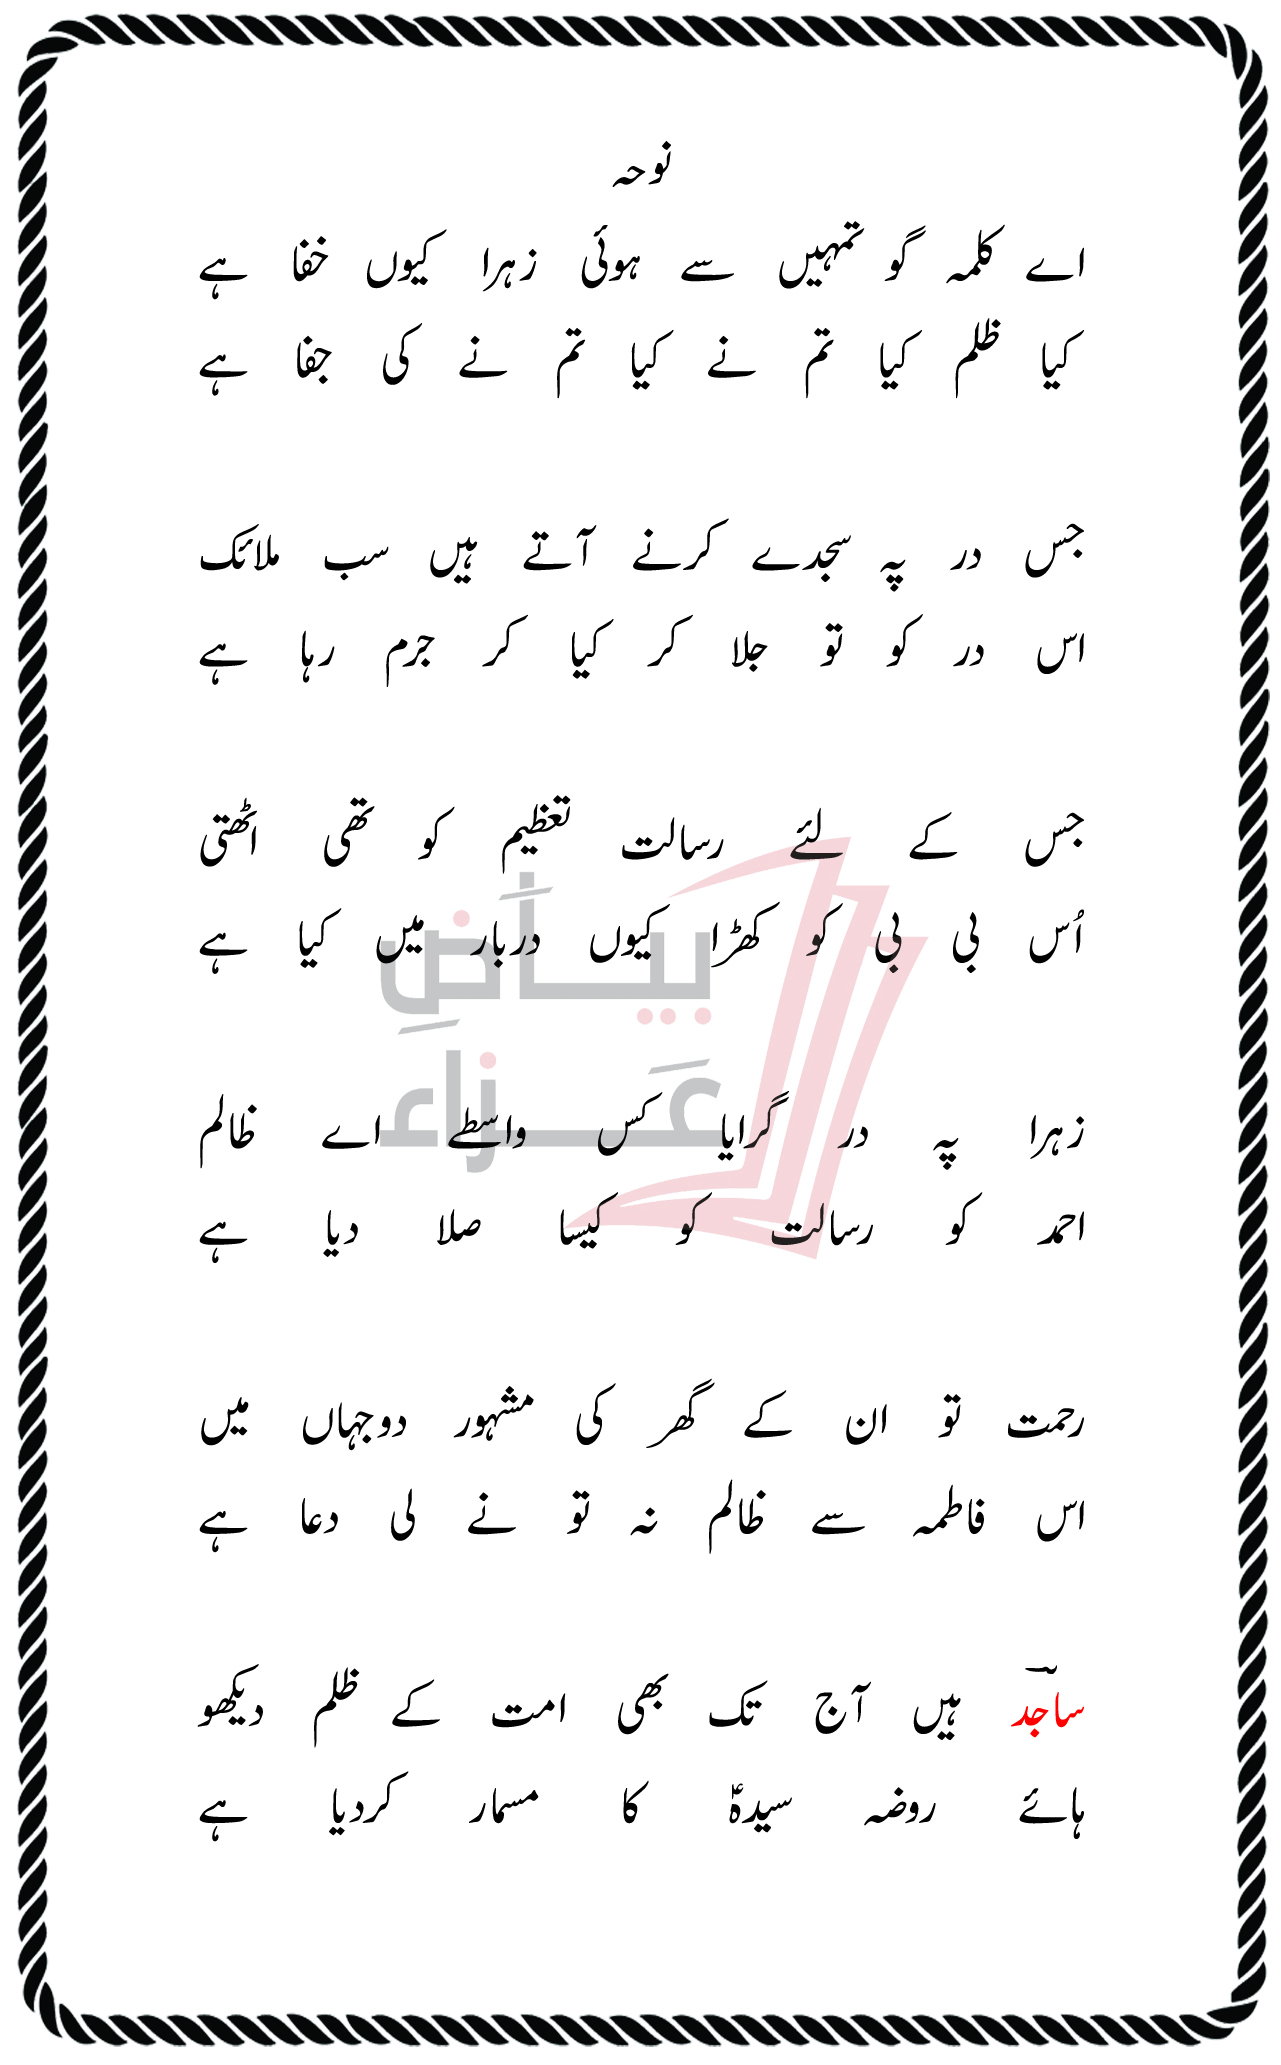 نوحہ
اے کلمہ گو تمہیں سے ہوئی زہرا کیوں خفا ہے
کیا ظلم کیا تم نے کیا تم نے کی جفا ہے
جس در پہ سجدے کرنے آتے ہیں سب ملائک
اس در کو تو جلا کر کیا کر جرم رہا ہے
جس کے لئے رسالت تعظیم کو تھی اٹھتی
اُس بی بی کو کھڑا کیوں دربار میں کیا ہے
بیاَضِ
عَزاء
زہرا پہ در گرایا کس واسطے اے ظالم
احمد کو رسالت کو کیسا صلا دیا ہے
رحمت تو ان کے گھر کی مشہور دوجہاں میں
اس فاطمہ سے ظالم نہ تو نے لی دعا ہے
ساجدؔ ہیں آج تک بھی امت کے ظلم دیکھو
ہائے روضہ سیدہؑ کا مسمار کردیا ہے